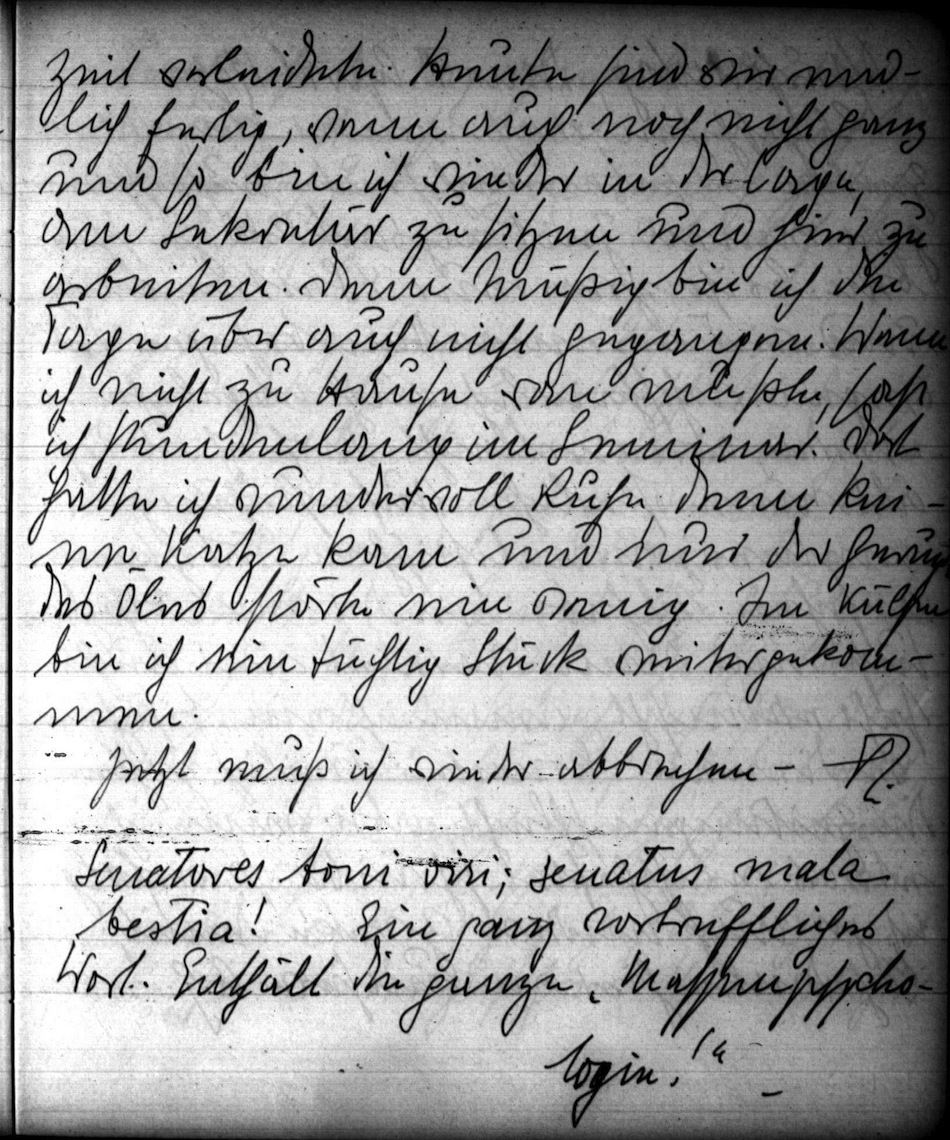 Zeit verleidete. Heute sind wir end-
lich fertig, wenn auch noch nicht ganz
und so bin ich wieder in der Lage,
am Sekretär zu sitzen und hier zu
arbeiten. Denn müßig bin ich die
Tage über auch nicht gegangen. Wenn
ich nicht zu Hause sein mußte, saß
ich stundenlang im Seminar. Dort
hatte ich wundervoll Ruhe denn kei-
ne Katze kam und nur der Geruch
des Öles störte ein wenig. Im
bin ich ein tüchtig Stück weitergekom-
men.
Jetzt muß ich wieder abbrechen –
Senatores boni viri; senatus mala
bestia! Ein ganz vortreffliches
Wort. Enthält die ganze „Massenpsycho-
logie!“ –